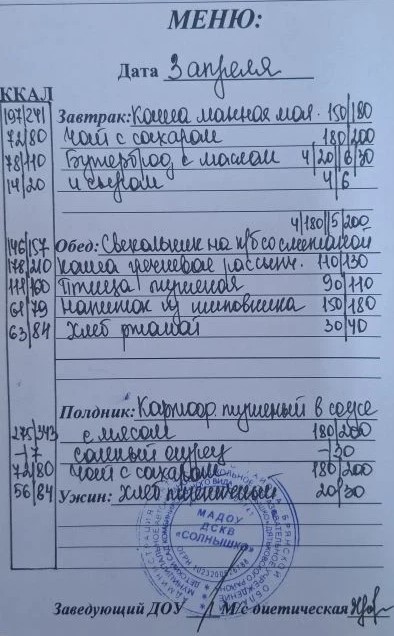 МЕНЮ:
Дата 3 апреля
ККАЛ
197/241 Завтрак: Каша манная мол. 150/180
72/80 Чай с сахаром 180/200
78/110 Бутерброд с маслом 4/20/6/30
14/20 и сыром 4/6
4/180/5/200
146/157 Обед: Свекольник на к/б со сметаной
178/210 каша гречневая рассып. 110/130
Птица тушеная 90/110
68/79 Напиток из шиповника 150/180
63/84 Хлеб ржаной 30/40
Полдник: Картоф. тушеный в соусе
275/343 с мясом 180/200
-/7 соленый огурец -/30
72/80 Чай с сахаром 180/200
56/84 Ужин: Хлеб пшеничный 20/30
МАДОУ
ДСКВ
«СОЛНЫШКО»
Заведующий ДОУ М/с диетическая